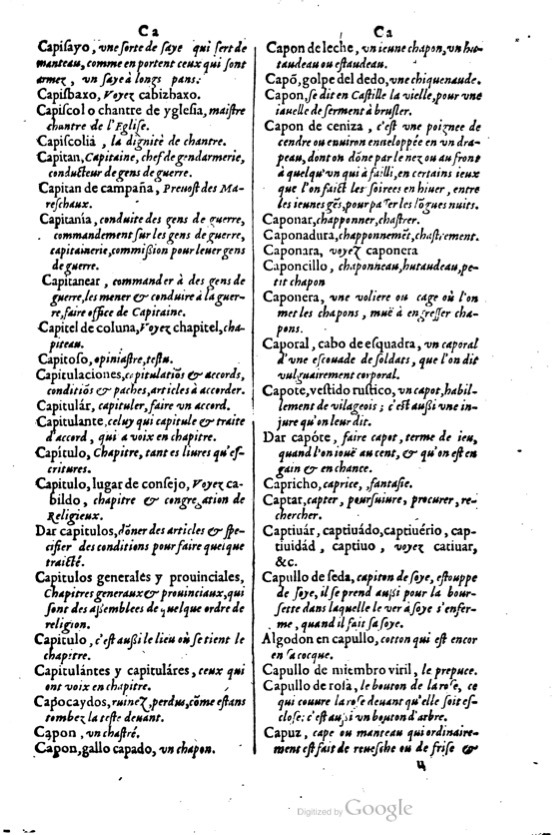 Ca
Capiſayo, vne ſorte de ſaye qui ſert de
manteau, comme en portent ceux qui ſont
armez, vn ſaye à longs pans.
Capiſbaxo, Voyez cabizbaxo.
Capiſcol o chantre de ygleſia, maiſtre
chantre de l'Egliſe.
Capiſcolia, la dignité de chantre.
Capitan, Capitaine, chef de gendarmerie,
conducteur de gens de guerre.
Capitan de campaña, Preuoſt des Ma-
reſchaux.
Capitanía, conduite des gens de guerre,
commandement ſur les gens de guerre,
capitainerie, commiſſion pour leuer gens
de guerre.
Capitanear, commander à des gens de
guerre, les mener & conduire à la guer-
re, faire office de Capitaine.
Capitel de coluna, Voyez chapitel, cha-
piteau.
Capitoſo, opiniaſtre, teſtu.
Capitulaciones, capitulatiōs & accords,
conditiōs & paches, articles à accorder.
Capitulár, capituler, faire un accord.
Capitulante, celuy qui capitule & traite
d'accord, qui a voix en chapitre.
Capítulo, Chapitre, tant es liures qu'eſ-
critures.
Capitulo, lugar de conſejo, Voyez ca-
bildo, chapitre & congregation de
Religieux.
Dar capitulos, dōner des articles & ſpe-
cifier des conditions pour faire quelque
traicté.
Capitulos generales y prouinciales,
Chapitres generaux & prouinciaux, qui
ſont des aſſemblees de quelque ordre de
religion.
Capitulo, c'eſt auſſi le lieu où ſe tient le
chapitre.
Capitulántes y capituláres, ceux qui
ont voix en chapitre.
Capocaydos, ruinez, perdus, cōme eſtans
tombez la teſte deuant.
Capon, vn chaſtré.
Capon, gallo capado, vn chapon.
Ca
Capon de leche, vn ieune chapon, vn hu-
taudeau ou eſtaudeau.
Capō, golpe del dedo, vne chiquenaude.
Capon, ſe dit en Caſtille la vielle, pour vne
iauelle de ſerment à bruſler.
Capon de ceniza, c'eſt vne poignee de
cendre ou enuiron enueloppée en vn dra-
peau, dont on dōne par le nez ou au front
à quelqu'vn qui à failli, en certains ieux
que l'on faict les ſoirees en hiuer, entre
les ieunes gēs, pour paſſer les lōgues nuits.
Caponar, chapponner, chaſtrer.
Caponadura, chapponnemēt, chaſtrement.
Caponara, voyez caponera
Caponcillo, chaponneau, hutaudeau, pe-
tit chapon
Caponera, vne voliere ou cage où l'on
met les chapons, muë à engreſſer cha-
pons.
Caporal, cabo de eſquadra, vn caporal
d'vne eſcouade de ſoldats, que l'on dit
vulguairement corporal.
Capote, veſtido ruſtico, vn capot, habil-
lement de vilageois; c'eſt auſſi vne in-
jure qu'on leur dit.
Dar capóte, faire capot, terme de ieu,
quand l'on iouë au cent, & qu'on eſt en
gain & en chance.
Capricho, caprice, fantaſie.
Captar, capter, pourſuiure, procurer, re-
chercher.
Captiuár, captiuádo, captiuério, cap-
tiuidád, captiuo, voyez catiuar,
&c.
Capullo de ſeda, capiton de ſoye, eſtouppe
de ſoye, il ſe prend auſſi pour la bour-
ſette dans laquelle le ver à ſoye s'enfer-
me, quand il fait ſa ſoye.
Algodon en capullo, cotton qui eſt encor
en ſa cocque.
Capullo de miembro viril, le prepuce.
Capullo de roſa, le bouton de la roſe, ce
qui couure la roſe deuant qu'elle ſoit eſ-
cloſe: c'eſt auſſi vn bouton d'arbre.
Capuz, cape ou manteau qui ordinaire-
ment eſt fait de reueſche ou de friſe &
Digitized by Google